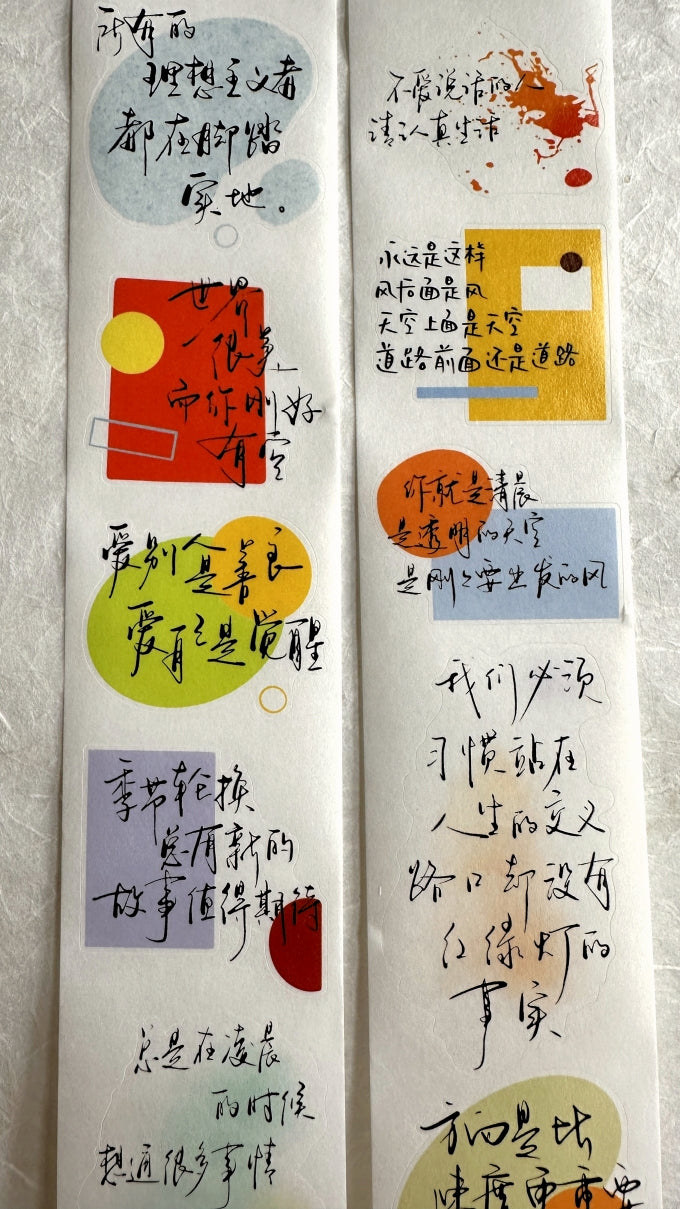 所有的
理想主义者
都在脚踏
实地。
世界
很美
而你刚好
有空
爱别人
是善良
爱自己是觉醒
季节轮换
总有新的
故事值得期待
总是在凌晨
的时候
想通很多事情
不爱说话的人
请认真生活
永远是这样
风后面是风
天空上面是天空
道路前面还是道路
你就是清晨
是透明的天空
是刚刚要出发的风
我们必须
习惯站在
人生的交叉
路口却没有
红绿灯的
事实
方向是比
速度更重要